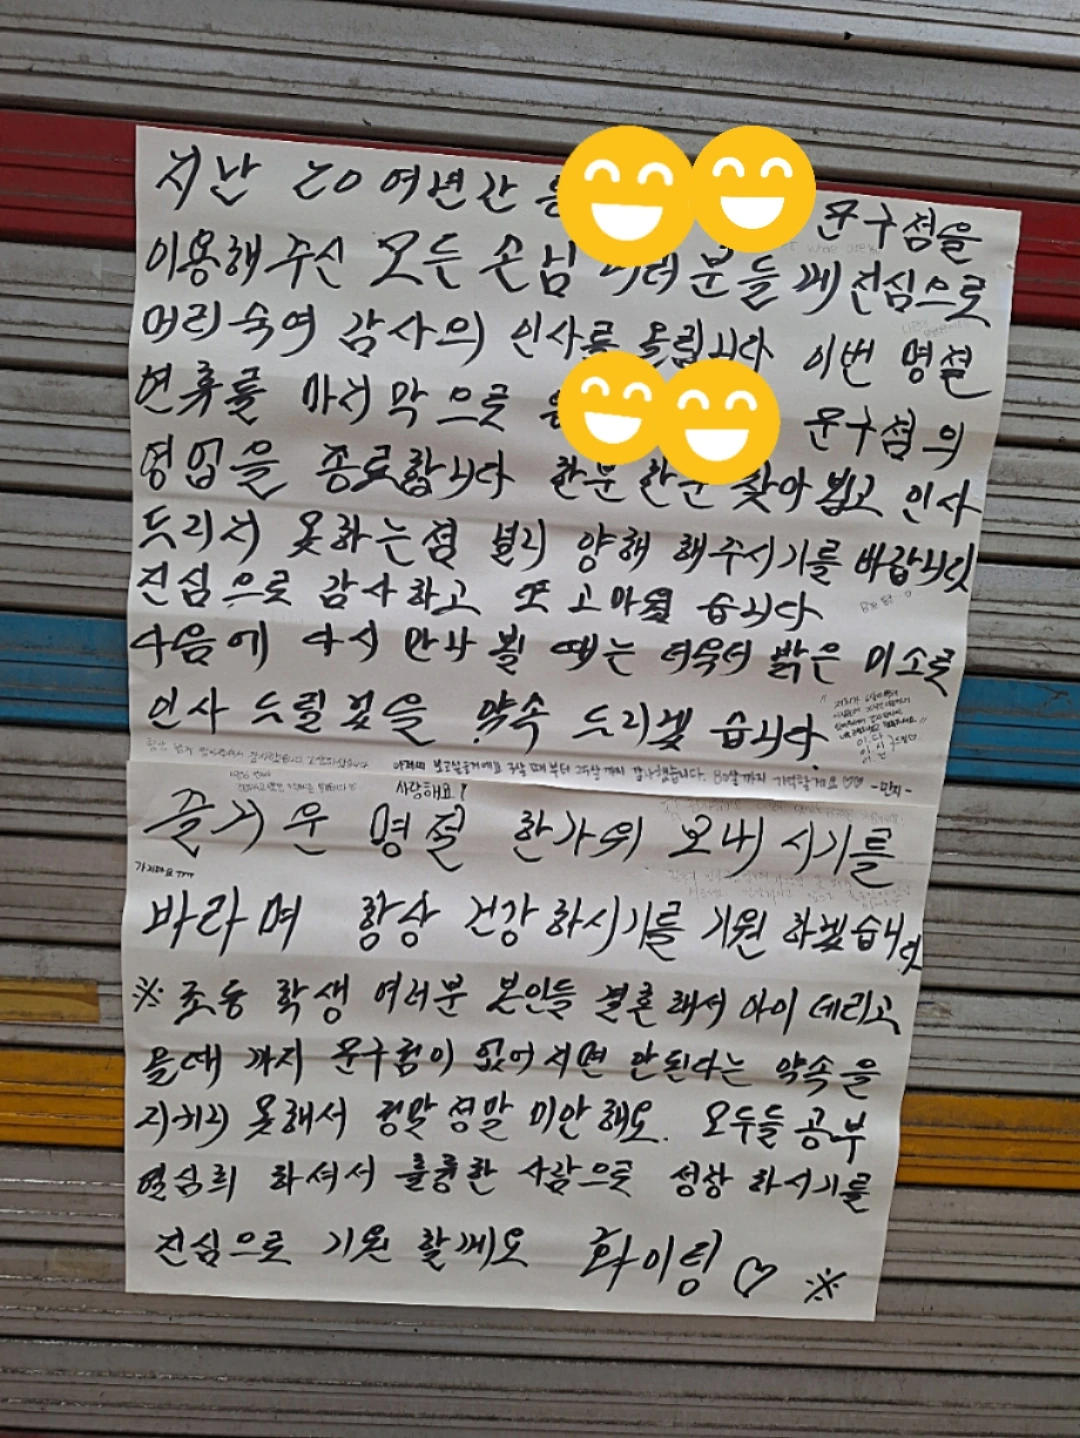 지난 20여년간 문구점을
이용해 주신 모든 손님 여러분들께 진심으로
머리숙여 감사의 인사를 올립니다 이번 명절
연휴를 마지막으로 문구점의
영업을 종료합니다 한분 한분 찾아 뵙고 인사
드리지 못하는점 널리 양해 해주시기를 바랍니다
진심으로 감사하고 또 고마웠습니다
다음에 다시 만나 뵐 때는 더욱더 밝은 미소로
인사 드릴것을 약속 드리겠습니다.
아저씨 보고싶을거에요 7살 때부터 25살까지 감사했습니다. 80살까지 기억할게요 ♡♡ -민지-
사랑해요!
즐거운 명절 한가위 보내시기를
가지마요 ㅠㅠ
바라며 항상 건강하시기를 기원 하겠습니다
※ 초등 학생 여러분 본인들 결혼해서 아이 데리고
올때 까지 문구점이 없어지면 안된다는 약속을
지키지 못해서 정말 정말 미안해요. 모두들 공부
열심히 하셔서 훌륭한 사람으로 성장 하시기를
진심으로 기원 할께요 화이팅 ♡ ※